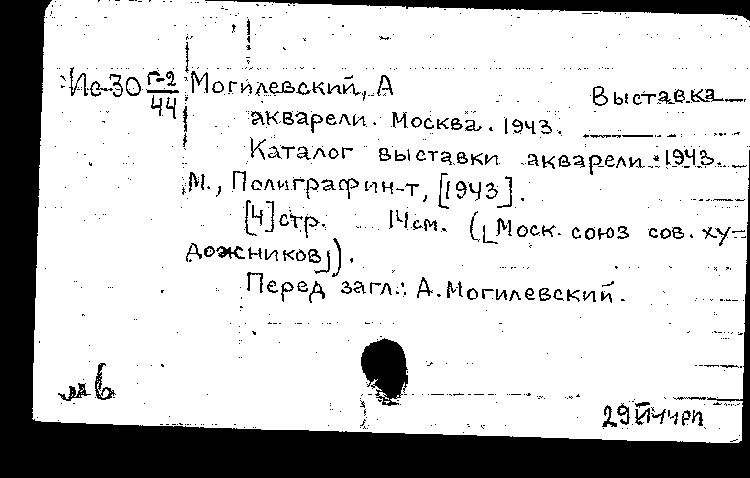 Ис-30 Г-2/44 Могилевский, А Выставка
акварели. Москва. 1943.
Каталог выставки акварели. 1943.
М., Полиграфин-т, [1943].
[4]стр. 14см. ([Моск. союз сов. ху-
дожников]).
Перед загл.: А.Могилевский.